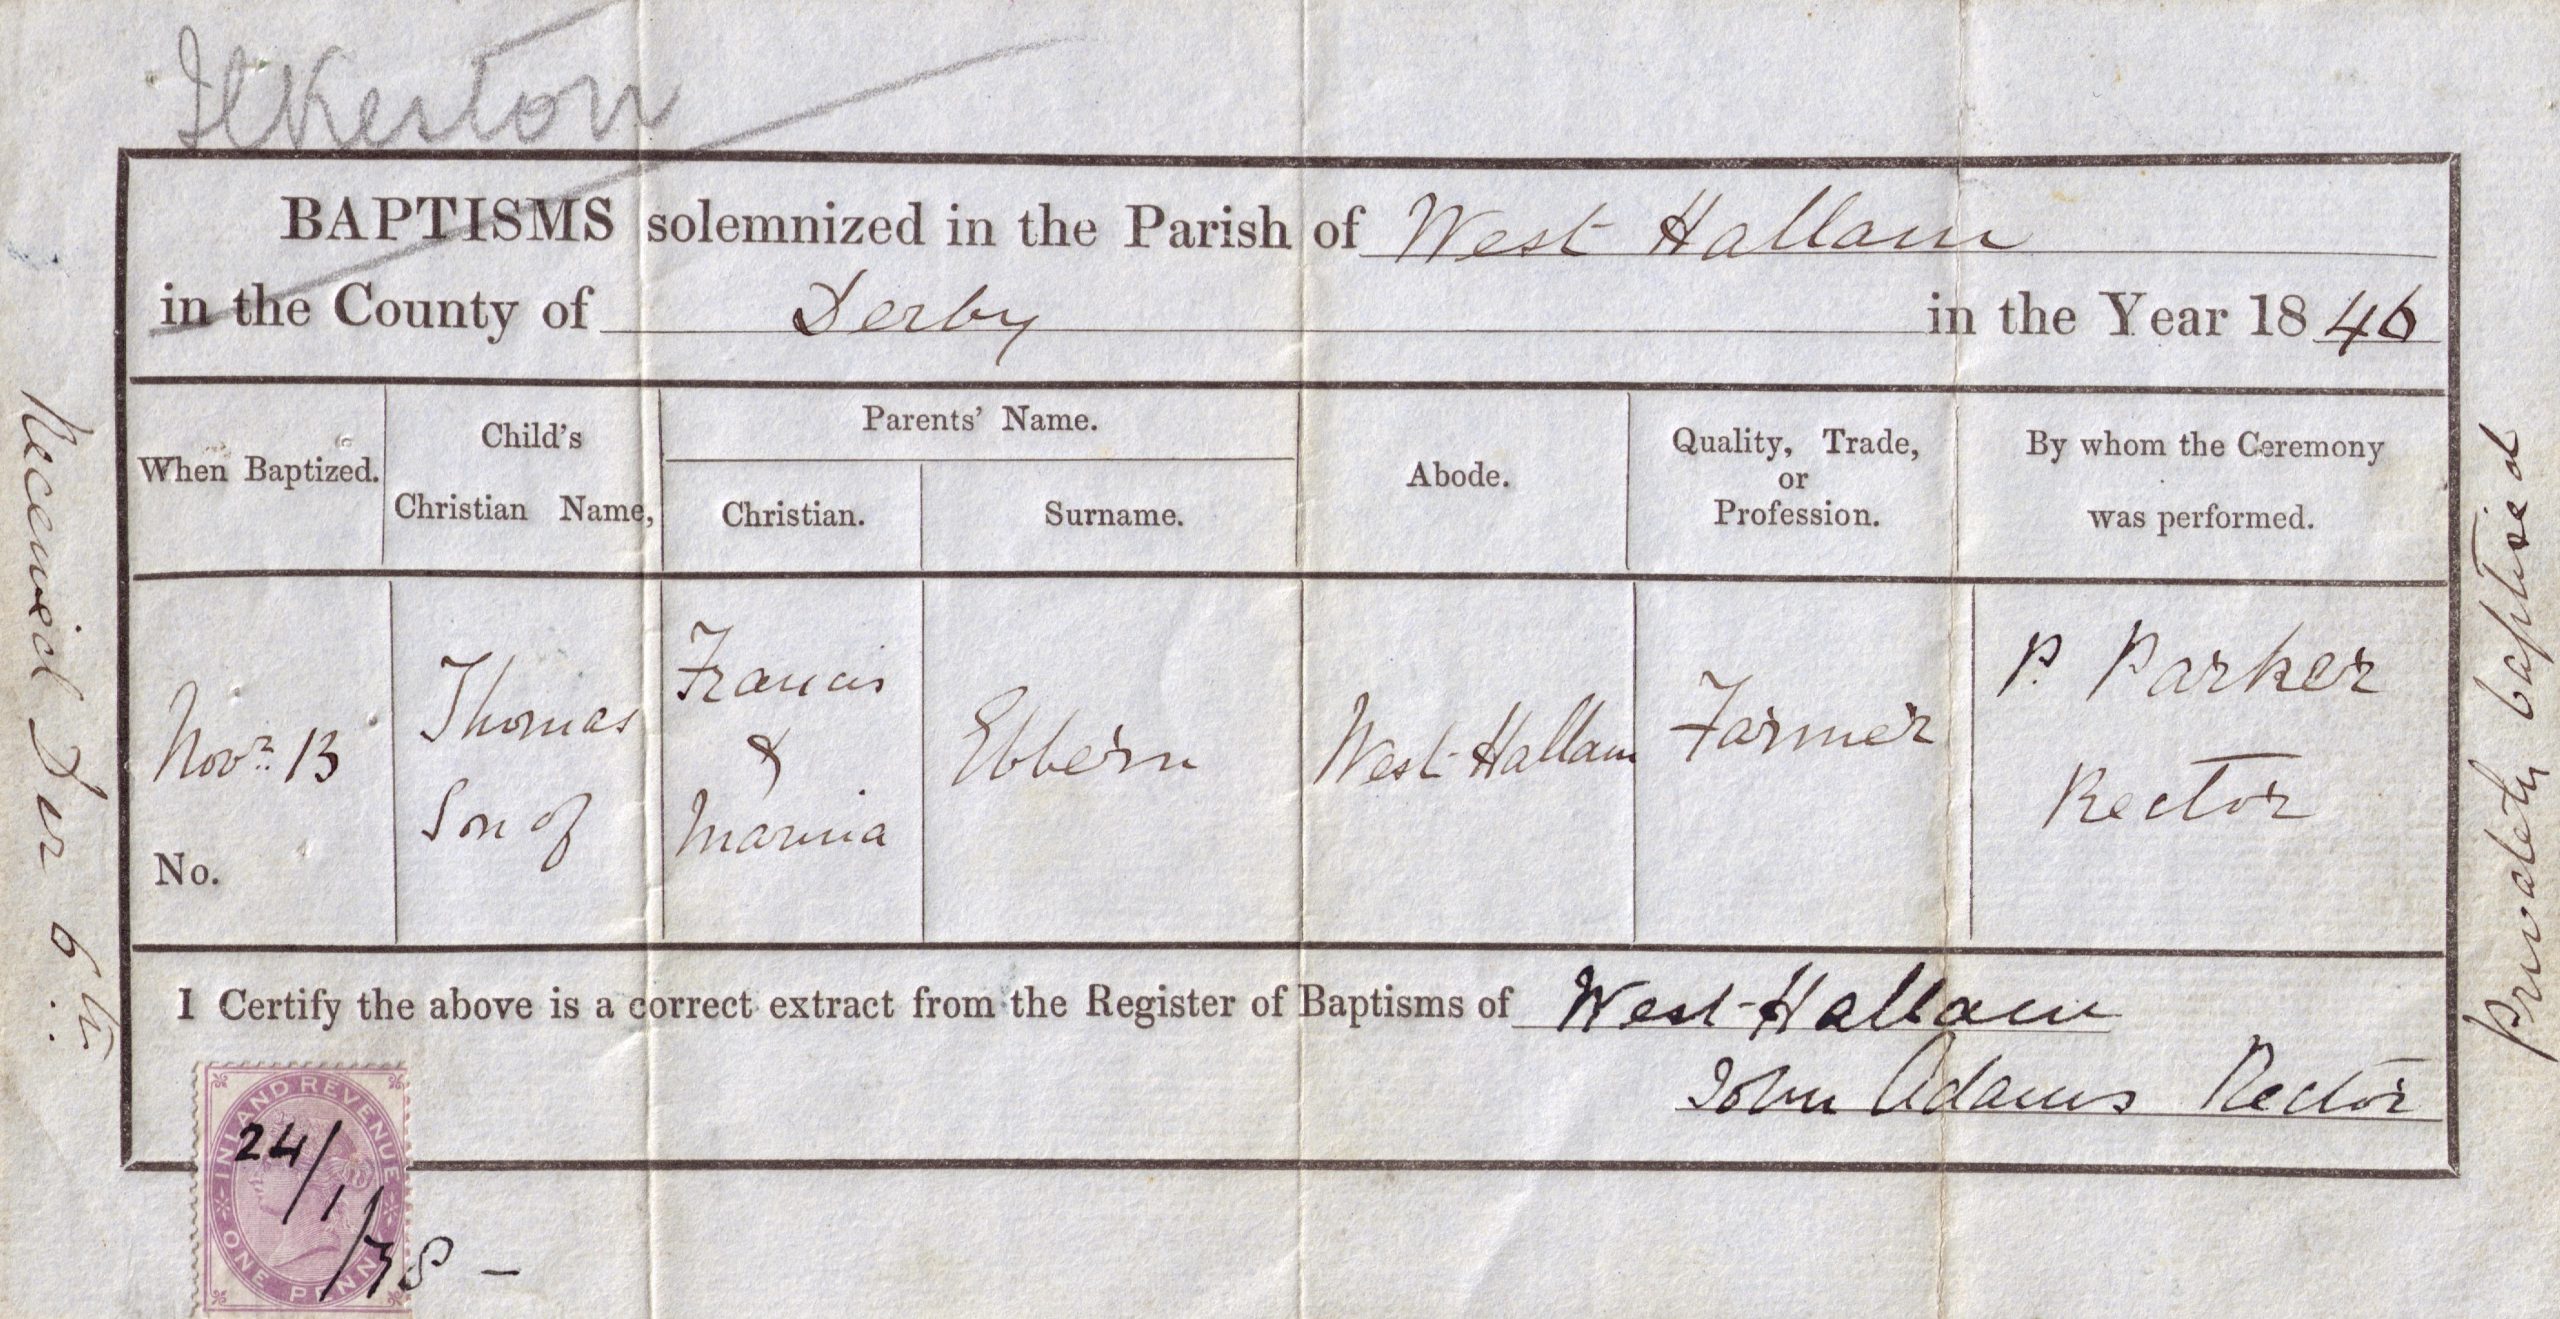 Ilkeston
BAPTISMS solemnized in the Parish of West Hallam
in the County of Derby in the Year 1846
When Baptized.
Child's
Christian Name,
Parents' Name.
Christian.
Surname.
Abode.
Quality, Trade,
or
Profession.
By whom the Ceremony
was performed.
Novr. 13
No.
Thomas
Son of
Francis
&
Marina
Ebbern
West Hallam
Farmer
P. Parker
Rector
I Certify the above is a correct extract from the Register of Baptisms of West Hallam
John Adams Rector
INLAND REVENUE
ONE PENNY
24/1/78 -
Received Dec 6th.
Privately baptised